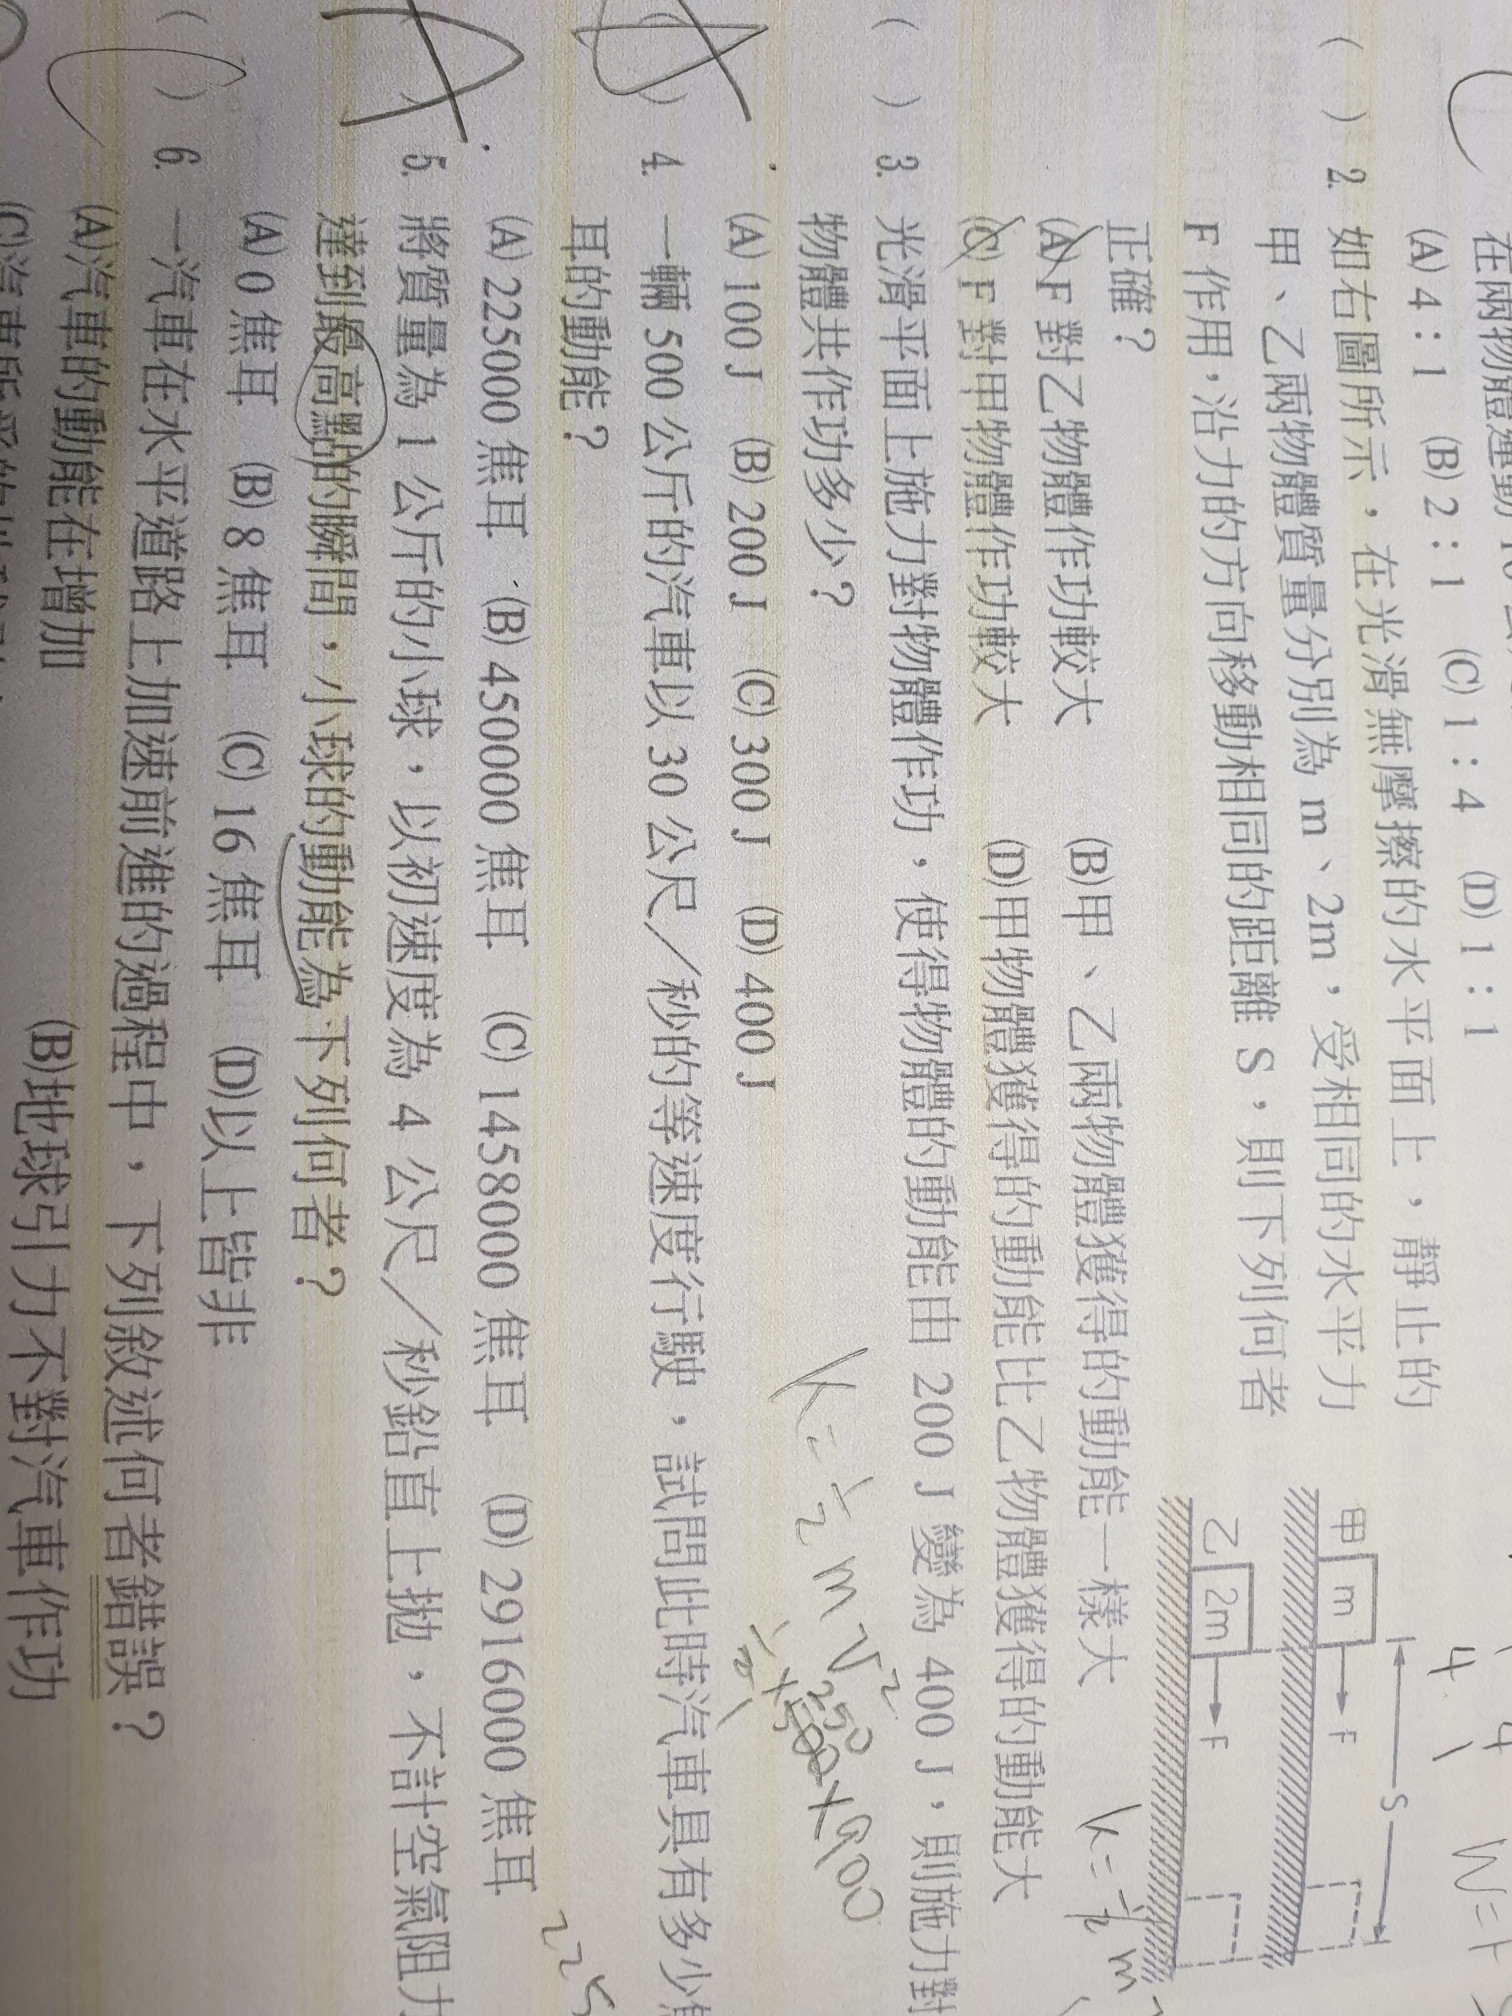 在兩物體運動10公
(A) 4：1 (B) 2：1 (C) 1：4 (D) 1：1
( ) 2. 如右圖所示，在光滑無摩擦的水平面上，靜止的
甲、乙兩物體質量分別為 m、2m，受相同的水平力
F 作用，沿力的方向移動相同的距離 S，則下列何者
正確？
(A) F 對乙物體作功較大 (B)甲、乙兩物體獲得的動能一樣大
(C) F 對甲物體作功較大 (D)甲物體獲得的動能比乙物體獲得的動能大
甲 m F S
乙 2m F
4 1
W=
K=½m
( ) 3. 光滑平面上施力對物體作功，使得物體的動能由 200 J 變為 400 J，則施力對
物體共作功多少？
(A) 100 J (B) 200 J (C) 300 J (D) 400 J
K=½mv²
250
½×500×900
( ) 4. 一輛 500 公斤的汽車以 30 公尺／秒的等速度行駛，試問此時汽車具有多少焦
耳的動能？
(A) 225000 焦耳 (B) 450000 焦耳 (C) 1458000 焦耳 (D) 2916000 焦耳
225
A
5. 將質量為 1 公斤的小球，以初速度為 4 公尺／秒鉛直上拋，不計空氣阻力
達到最高點的瞬間，小球的動能為下列何者？
(A) 0 焦耳 (B) 8 焦耳 (C) 16 焦耳 (D)以上皆非
( ) 6. 一汽車在水平道路上加速前進的過程中，下列敘述何者錯誤？
(A)汽車的動能在增加 (B)地球引力不對汽車作功
(C)汽車所受的